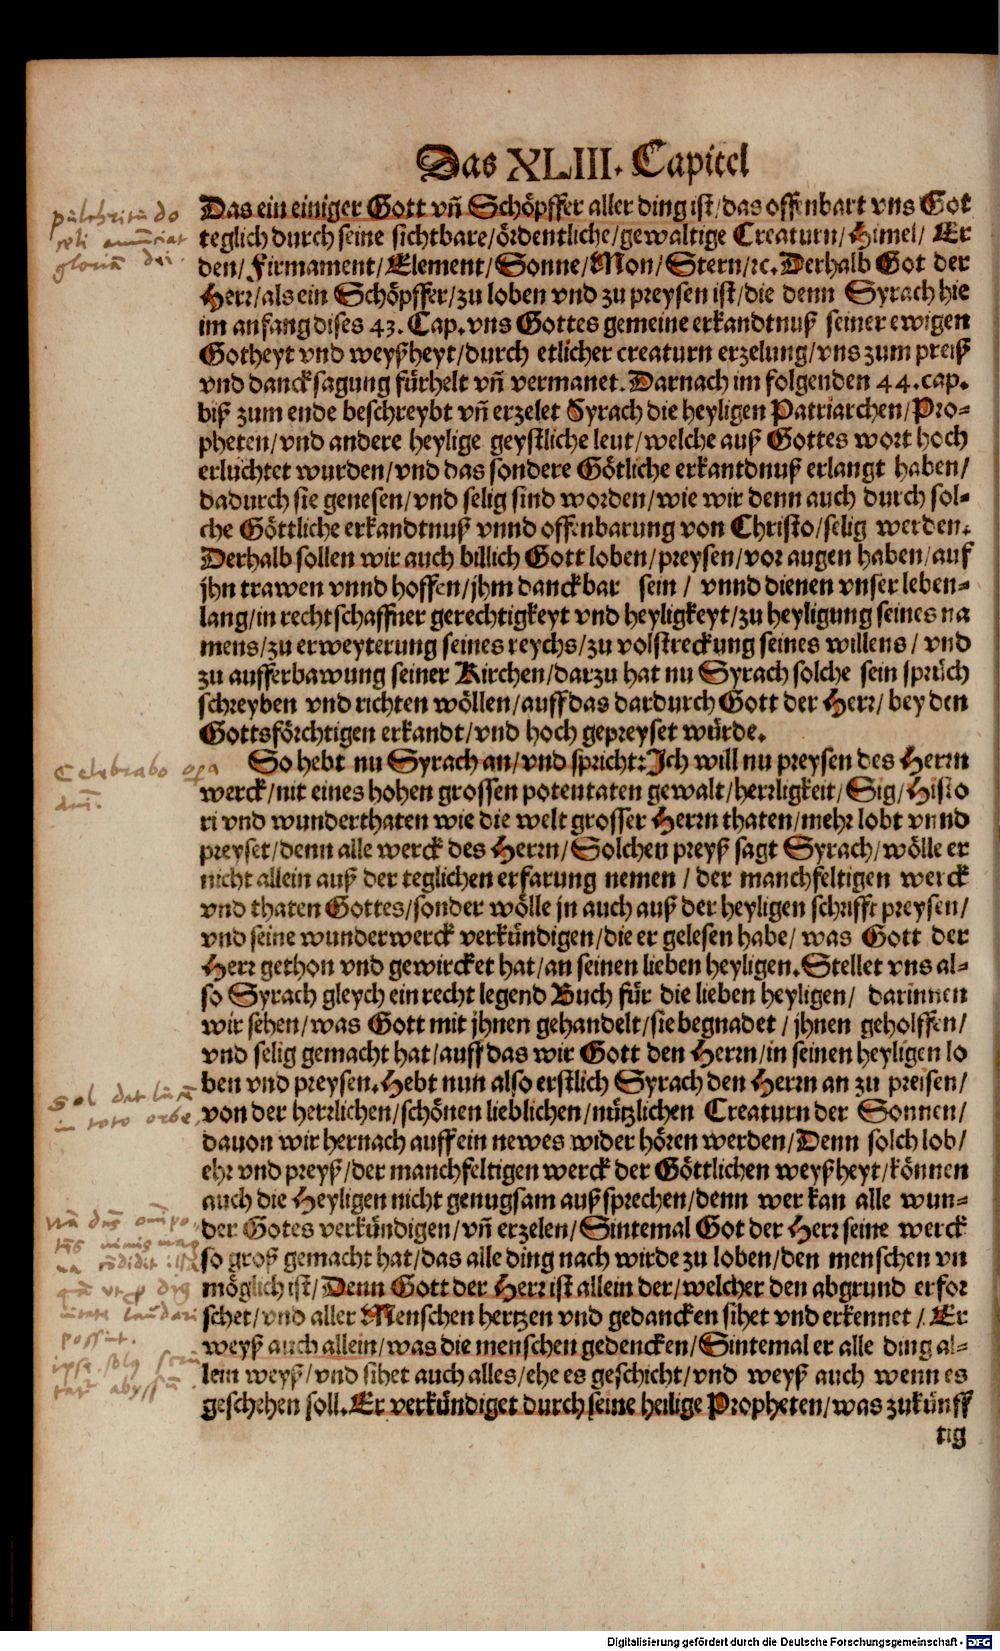 Das XLIII. Capitel
Das ein einiger Gott vñ Schöpffer aller ding ist/das offenbart vns Got
teglich durch seine sichtbare/ördentliche/gewaltige Creaturn/Himel/ Er
den/Firmament/Element/Sonne/Mon/Stern/ꝛc. Derhalb Got der
Herr/als ein Schöpffer/zu loben vnd zu preysen ist/die denn Syrach hie
im anfang dises 43. Cap. vns Gottes gemeine erkandtnuß seiner ewigen
Gotheyt vnd weyßheyt/durch etlicher creaturn erzelung/vns zum preiß
vnd dancksagung fürhelt vñ vermanet. Darnach im folgenden 44. cap.
biß zum ende beschreybt vñ erzelet Syrach die heyligen Patriarchen/Pro-
pheten/vnd andere heylige geystliche leut/welche auß Gottes wort hoch
erluchtet wurden/vnd das sondere Götliche erkantdnuß erlangt haben/
dadurch sie genesen/vnd selig sind worden/wie wir denn auch durch sol-
che Göttliche erkandtnuß vnnd offenbarung von Christo/selig werden.
Derhalb sollen wir auch billich Gott loben/preysen/vor augen haben/auf
jhn trawen vnnd hoffen/jhm danckbar sein / vnnd dienen vnser leben-
lang/in rechtschaffner gerechtigkeyt vnd heyligkeyt/zu heyligung seines na
mens/zu erweyterung seines reychs/zu volstreckung seines willens / vnd
zu aufferbawung seiner Kirchen/darzu hat nu Syrach solche sein sprüch
schreyben vnd richten wöllen/auff das dardurch Gott der Herr/ bey den
Gottsförchtigen erkandt/vnd hoch gepreyset würde.
So hebt nu Syrach an/vnd spricht: Ich will nu preysen des Herrn
werck/nit eines hohen grossen potentaten gewalt/herrligkeit/ Sig/ Histo
ri vnd wunderthaten wie die welt grosser Herrn thaten/mehr lobt vnnd
preyset/denn alle werck des Herrn/ Solchen preyß sagt Syrach/wölle er
nicht allein auß der teglichen erfarung nemen / der manchfeltigen werck
vnd thaten Gottes/sonder wölle jn auch auß der heyligen schrifft preysen/
vnd seine wunderwerck verkündigen/die er gelesen habe/ was Gott der
Herr gethon vnd gewircket hat/an seinen lieben heyligen. Stellet vns al-
so Syrach gleych ein recht legend Buch für die lieben heyligen/ darinnen
wir sehen/was Gott mit jhnen gehandelt/sie begnadet / jhnen geholffen/
vnd selig gemacht hat/auff das wir Gott den Herrn/in seinen heyligen lo
ben vnd preysen. Hebt nun also erstlich Syrach den Herrn an zu preisen/
von der herrlichen/schönen lieblichen/nützlichen Creaturn der Sonnen/
dauon wir hernach auff ein newes wider hören werden/Denn solch lob/
ehr vnd preyß/der manchfeltigen werck der Göttlichen weyßheyt/können
auch die Heyligen nicht genugsam außsprechen/denn wer kan alle wun-
der Gotes verkündigen/vñ erzelen/Sintemal Got der Herr seine werck
so groß gemacht hat/das alle ding nach wirde zu loben/den menschen vn
möglich ist/ Denn Gott der Herr ist allein der/welcher den abgrund erfor
schet/vnd aller Menschen hertzen vnd gedancken sihet vnd erkennet /. Er
weyß auch allein/was die menschen gedencken/Sintemal er alle ding al-
lein weyß/vnd sihet auch alles/ehe es geschicht/vnd weyß auch wenn es
geschehen soll. Er verkündiget durch seine heilige Propheten/was zukünff
tig
pulchritũ do
celi annũciat
gloriã dei.
Celebrabo opa
dnĩ.
Sol dat lucẽ
in toto orbe
possint.
abyssũ
Digitalisierung gefördert durch die Deutsche Forschungsgemeinschaft - DFG